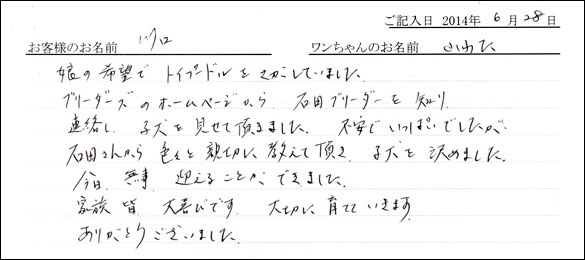 ご記入日 2014年 6月 28日
お客様のお名前 川口 ワンちゃんのお名前
娘の希望で トイプードルをさがしていました。
ブリーダーズのホームページから 石田ブリーダーを知り
連絡し 子犬を見せて頂きました。 不安でいっぱいでしたが、
石田さんから色々と親切に教えて頂き 子犬を決めました。
今日 無事 迎えることができました。
家族 皆 大喜びです 大切に育てていきます
ありがとうございました。